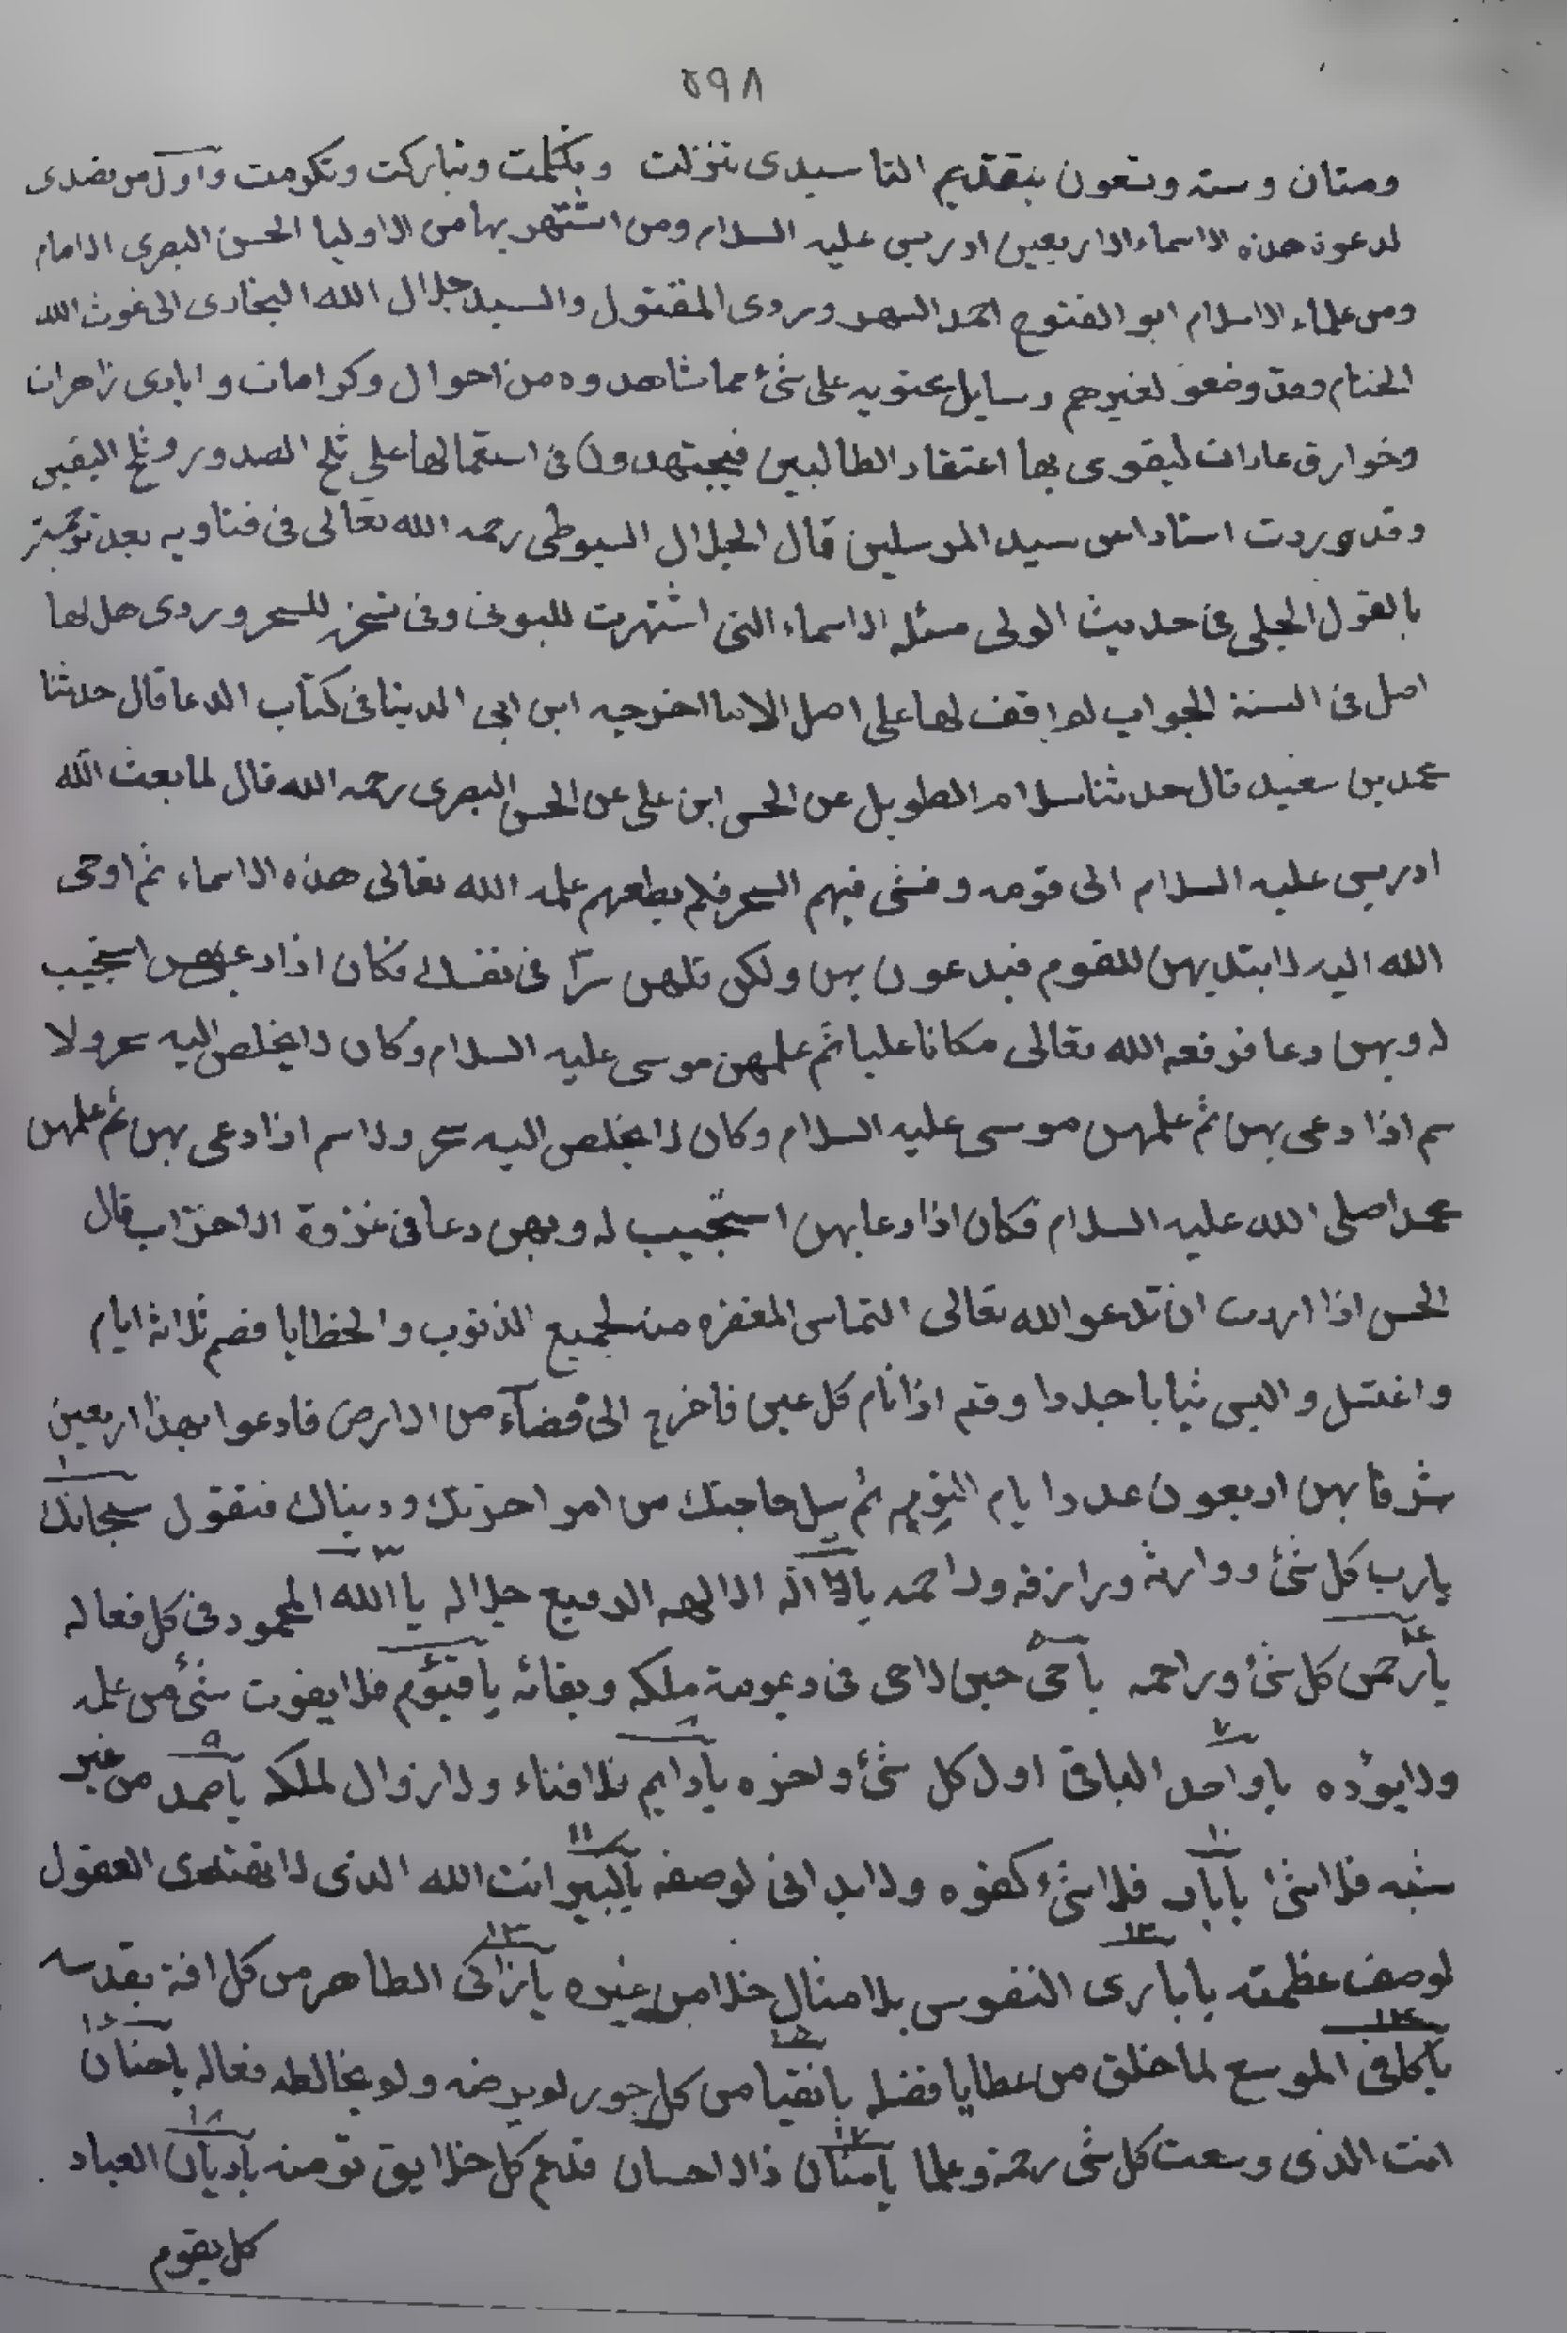 ٥٩٨
ومتان وستة وتسعون بتقديم التا سيدى تنزلت وتباركت وتكرمت واول من تصدى
لدعوة هذه الاسماء الاربعين ادريس عليه السلام ومن اشتهر بها من الاوليا الحسن البصرى الامام
ومن علماء الاسلام ابو الفتوح احمد السهروردى المقتول والسيد جلال الله البخارى الى غوث الله
الختام وقد وضعو لغيرهم رسايل محتويه على شئ مما شاهدوه من احوال وكرامات وايادى زاهرات
وخوارق عادات ليقوى بها اعتقاد الطالبين فيجتهدون فى استعمالها على ثلج الصدور وثلج اليقين
وقد وردت اسنادا عن سيد المرسلين قال الجلال السيوطى رحمه الله تعالى فى فتاويه بعد ترجمته
بالقول الجلى فى حديث الولى مسئله الاسماء التى اشتهرت للبونى وفى للسهروردى هل لها
اصل فى السنة الجواب لم اقف لها على اصل الا ما اخرجه ابن ابى الدينا فى كتاب الدعا قال حدثنا
محمد بن سعيد قال حدثنا سلام الطويل عن الحسن ابن على عن الحسن البصرى رحمه الله قال لما بعث الله
ادريس عليه السلام الى قومه وفشى فيهم السحر فلم يطعهم علمه الله تعالى هذه الاسماء ثم اوحى
الله اليه لا بهن للقوم فيدعون بهن ولكن قلهن سرًّا فى نفسك فكان اذا دعى بهن استجيب
له وبهن دعا فرفعه الله تعالى مكانا عليا ثم علمهن موسى عليه السلام وكان لا يخلص اليه سحر ولا
سم اذا دعى بهن ثم علمهن موسى عليه السلام وكان لا يخلص اليه سحر ولا سم اذا دعى بهن ثم علمهن
محمدا صلى الله عليه السلام فكان اذا دعا بهن استجيب له وبهن دعا فى غزوة الاحزاب قال
الحسن اذا اردت ان تدعو الله تعالى التماس المغفره منه لجميع الذنوب والخطايا فصم ثلاثه ايام
واغتسل والبس ثيابا جددا وقم اذا نام كل عين فاخرج الى فضآء من الارض فادعوا بهذا اربعين
بهن اربعون عدد ايام ثم سل حاجتك من امر اخرتك ودنياك فتقول سبحانك ١
يا رب كل شئ ووارثه ورازقه وراحمه يا اله الالهه الرفيع جلاله يا الله المحمود فى كل فعاله
يا رحمن كل شئ وراحمه ياحى حين لاحى فى ديمومة ملكه وبقائه يا قيوم فلا يفوت شئ من علمه
ولا يؤده يا واحد الباقى اول كل شئ واخره يا دايم فلا فناء ولا زوال لملكه يا صمد من غير
شبه فلا شئ يا بار فلا شئ كفوه ولا لوصفه يا كبير انت الله الذى لا تهتدى العقول
لوصف عظمته يا بارى النفوس بلا مثال خلا من غيره يا زاكى الطاهر من كل افة بقدسه
يا كافى الموسع لما خلق من عطايا فضله يا نقيا من كل جور لم يرضه ولم يخالطه فعاله يا حنان
انت الذى وسعت كل شى رحمة وعلما يا منان ذا الاحسان قد عم كل خلايق منه يا ديان العباد
كل يقوم